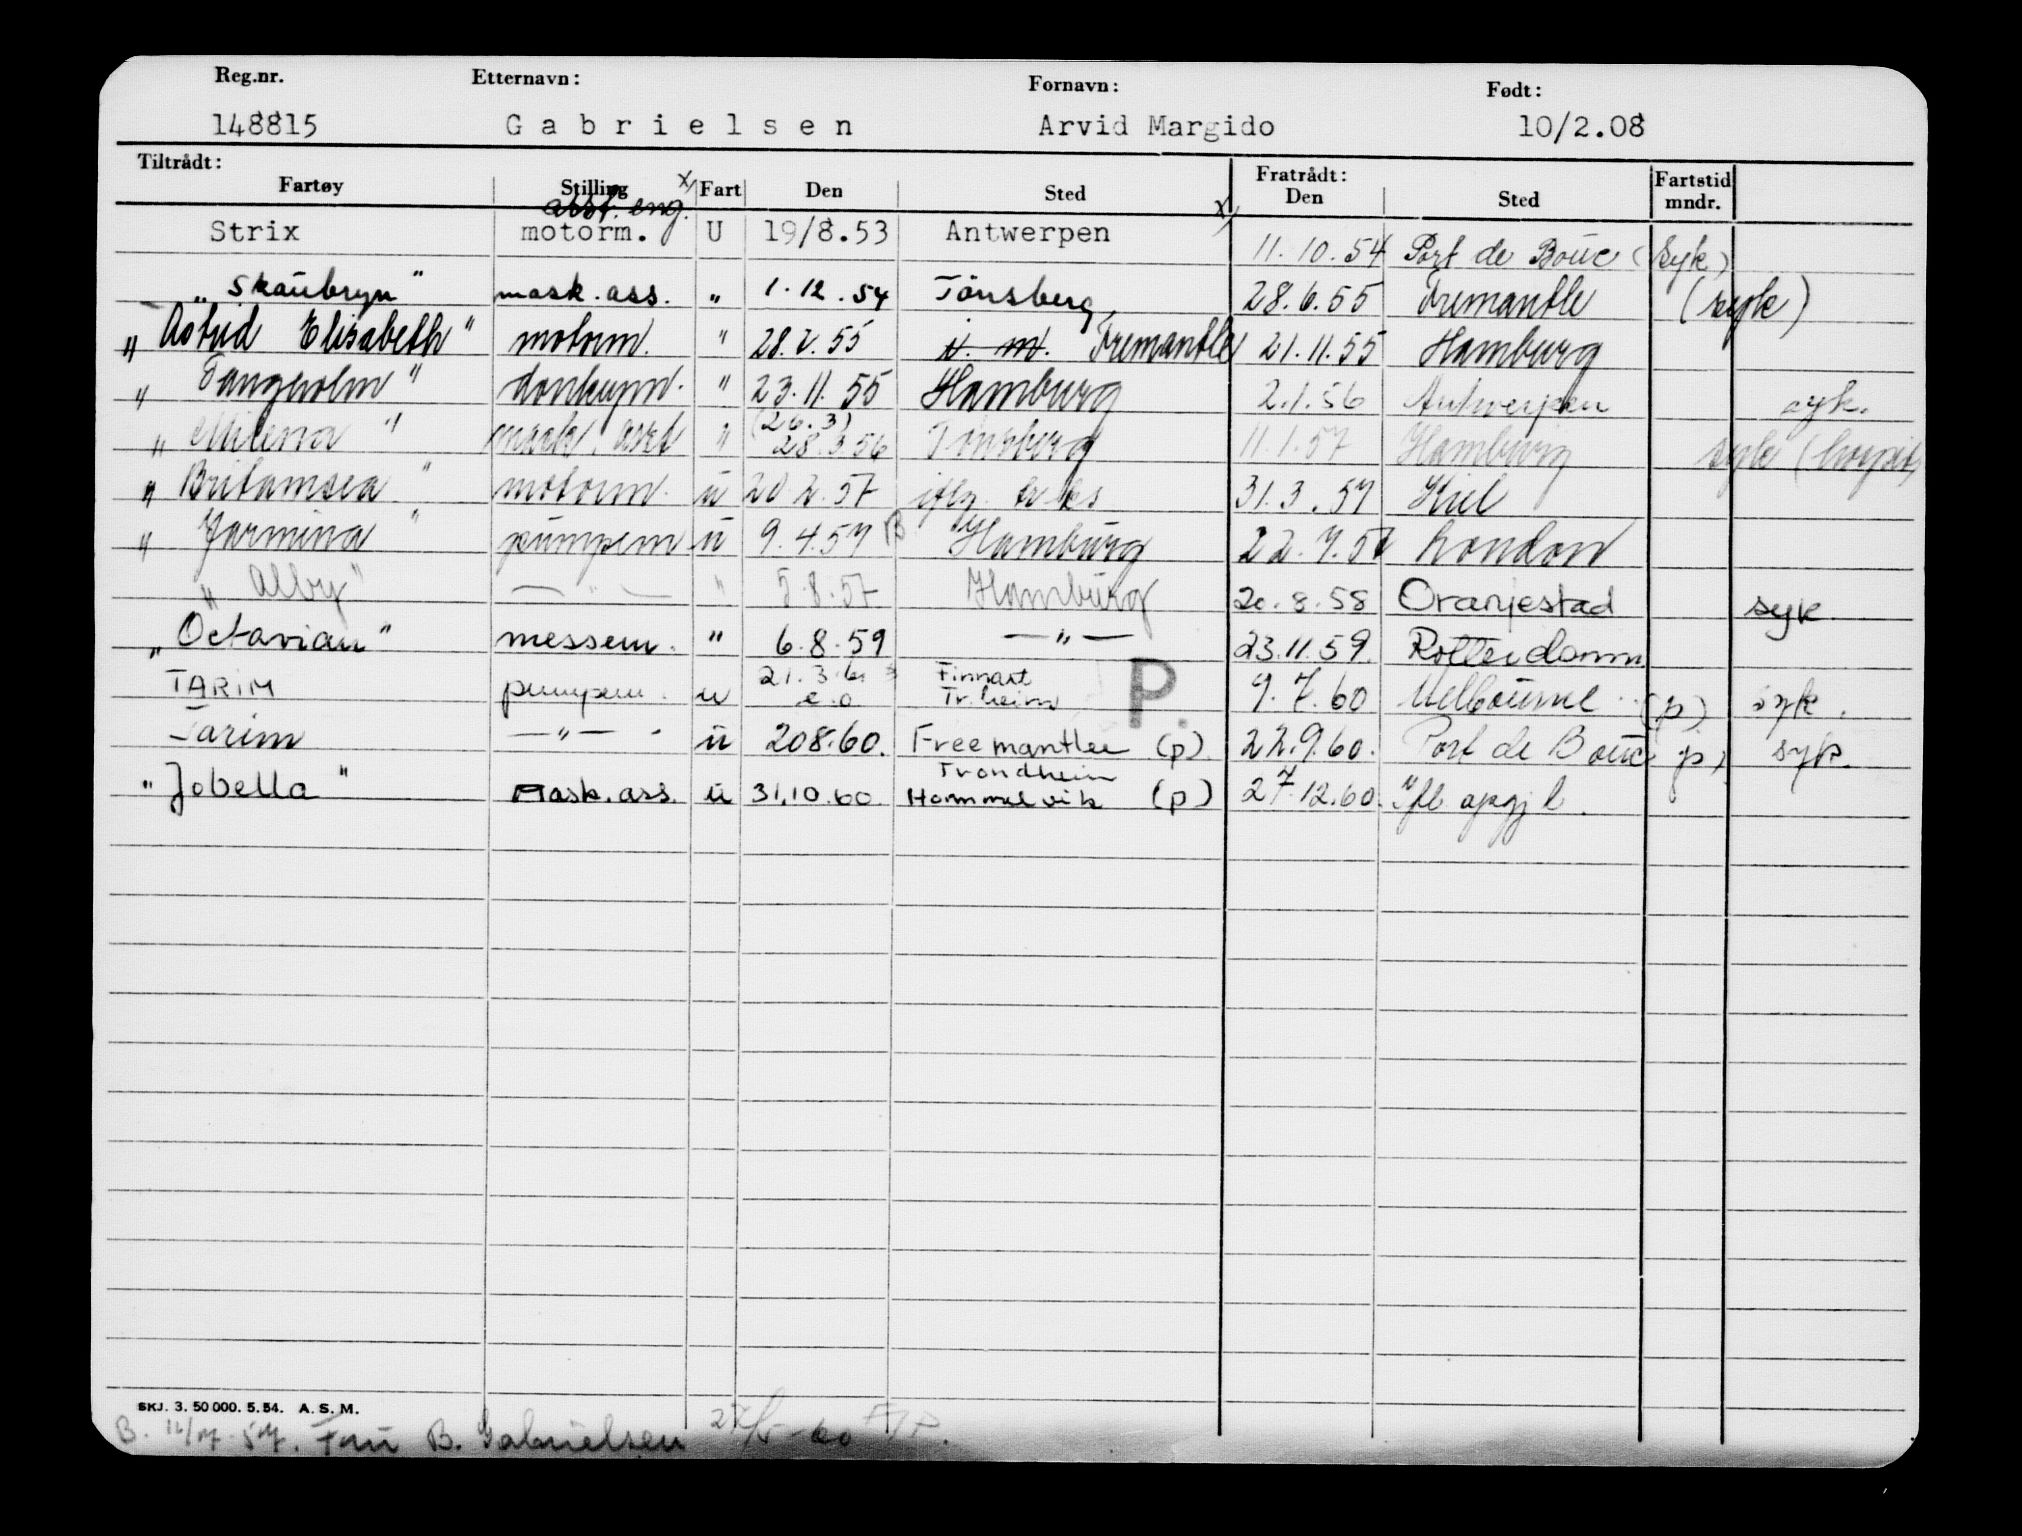 Reg.nr. Etternavn: Fornavn: Født:
148815 Gabrielsen Arvid Margido 10/2.08
Tiltrådt: Fratrådt:
Fartøy Stilling x/ Fart Den Sted x/ Den Sted Fartstid mndr.
asst. eng.
Strix motorm. U 19/8.53 Antwerpen 11.10.54 Port de Bouc (syk)
"Skaubryn" mask.ass. " 1.12.54 Tönsberg 28.6.55 Fremantle (syk)
"Astrid Elisabeth" motorm. " 28.6.55 Fremantle 21.11.55 Hamburg
"Tangholm" donkeym. " 23.11.55 Hamburg 2.1.56 Antwerpen syk.
(26.3)
"Milena" mask. asst " 28.3.56 Tönsberg 11.1.57 Hamburg syk (hospit)
"Britamsea" motorm. u 20.2.57 iflg. 31.3.57 Kiel
"Jarmina" pumpem u 9.4.57 B Hamburg 22.7.57 London
"Alby" — " — " 5.8.57 Hamburg 20.8.58 Oranjestad syk
"Octavian" messem. " 6.8.59 — " — 23.11.59 Rotterdamm
21.3.60 Finnart P.
TARIM pumpem. u e.o Tr.heim 9.7.60 Melbourne (p) syk.
Tarim — " — u 20.8.60. Freemantlee (p) 22.9.60. Port de Bouc (p) syk.
Trondheim
"Jobella" Mask.ass. u 31.10.60. Hommelvik (p) 27.12.60. Ifl.
SKJ. 3. 50 000. 5.54. A.S.M.
B. Fru B. Gabrielsen